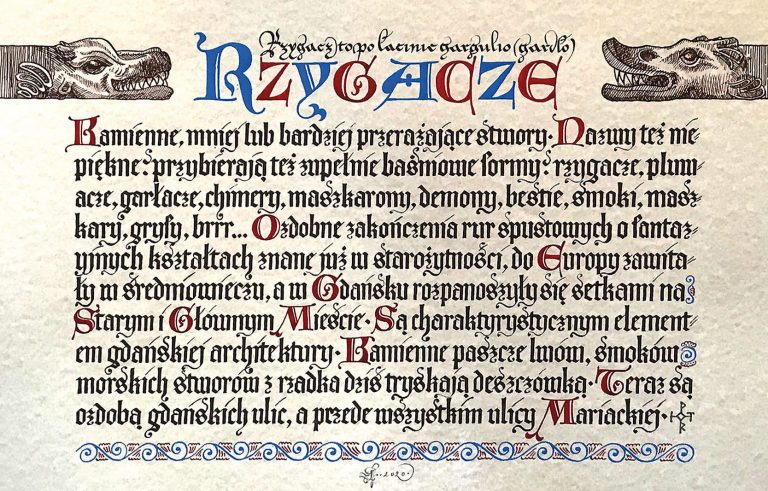 Rzygacz to po łacinie gargulio (gardło)
RZYGACZE
Kamienne, mniej lub bardziej przerażające stwory. Nazwy też nie-
piękne: przybierają też zupełnie baśniowe formy: rzygacze, pluw-
acze, garłacze, chimery, maszkarony, demony, bestie, smoki, masz-
kary, gryfy, brrr... Ozdobne zakończenia rur spustowych o fantaz-
yjnych kształtach znane już w starożytności, do Europy zawita-
ły w średniowieczu, a w Gdańsku rozpanoszyły się setkami na
Starym i Głównym Mieście. Są charaktyrystycznym element-
em gdańskiej architektury. Kamienne paszcze lwów, smoków
morskich stworów z rzadka dziś tryskają deszczówką. Teraz są
ozdobą gdańskich ulic, a przede wszystkim ulicy Mariackiej.
2020